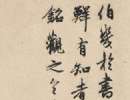 伯幾於書
鮮有知者
銘觀之令